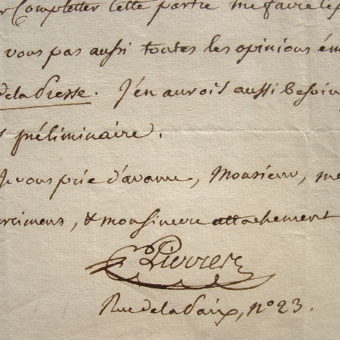 r Completter cette partie me faire le p
vous pas aussi toutes les opinions ém
de la Presse. J'en aurois aussi besoin
préliminaire.
Je vous prie d'avance, Monsieur, me
ercimens, & mon sincere attachement
Rue de la Paix, n° 23.